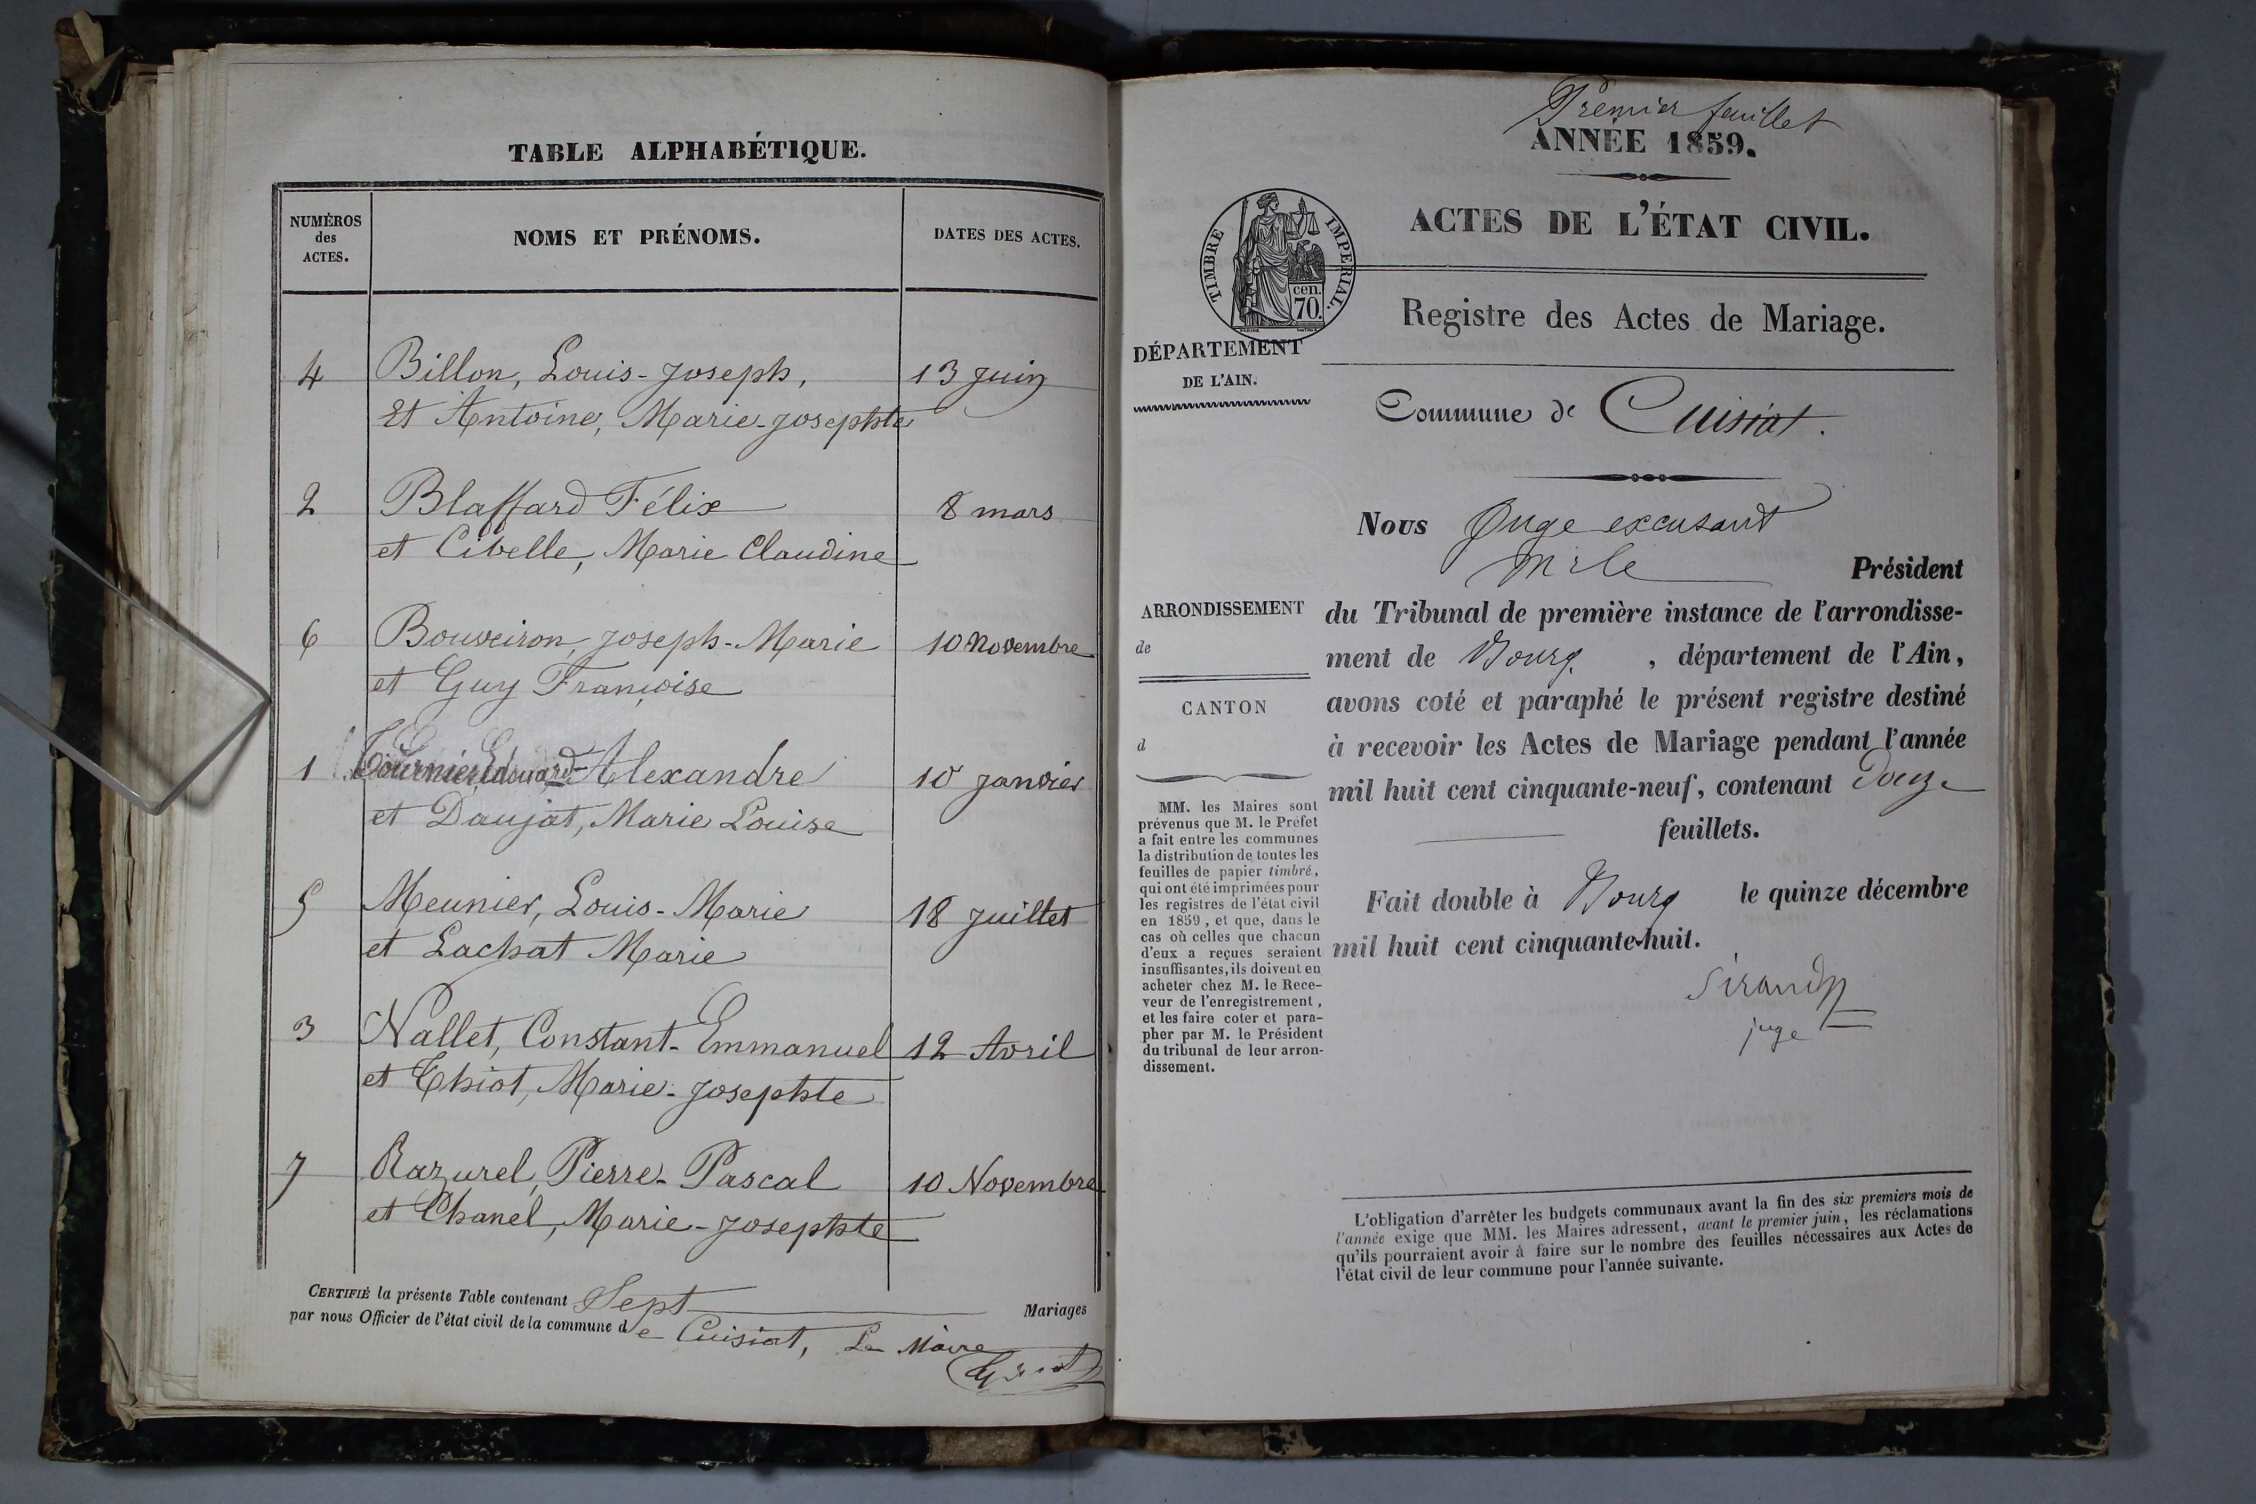 TABLE ALPHABÉTIQUE.
NUMÉROS
des
ACTES.
NOMS ET PRÉNOMS.
DATES DES ACTES.
4 Billon, Louis-Joseph, 13 Juin
Et Antoine, Marie-Josephte
2 Blaffard Félix 8 mars
et Cibelle, Marie Claudine
6 Bouveiron, Joseph-Marie 10 Novembre
et Guy Françoise
1 Tournier, Edouard-Alexandre 10 janvier
et Daujat, Marie Louise
5 Meunier, Louis-Marie 18 Juillet
et Lachat Marie
3 Nallet, Constant-Emmanuel 12 Avril
et Thiot, Marie-Josephte
7 Razurel, Pierre-Pascal 10 Novembre
et Chanel, Marie-Josephte
CERTIFIÉ la présente Table contenant Sept Mariages
par nous Officier de l'état civil de la commune de Cuisiat, Le Maire
Premier feuillet
ANNÉE 1859.
ACTES DE L'ÉTAT CIVIL.
TIMBRE IMPERIAL.
cen.
70.
Registre des Actes de Mariage.
DÉPARTEMENT
DE L'AIN.
Commune de Cuisiat.
Nous Juge excusant
Mr le Président
du Tribunal de première instance de l'arrondisse-
ment de Bourg, département de l'Ain,
avons coté et paraphé le présent registre destiné
à recevoir les Actes de Mariage pendant l'année
mil huit cent cinquante-neuf, contenant douze
feuillets.
Fait double à Bourg le quinze décembre
mil huit cent cinquante-huit.
Sirand
juge
ARRONDISSEMENT
de
CANTON
d
MM. les Maires sont
prévenus que M. le Préfet
a fait entre les communes
la distribution de toutes les
feuilles de papier timbré,
qui ont été imprimées pour
les registres de l'état civil
en 1859, et que, dans le
cas où celles que chacun
d'eux a reçues seraient
insuffisantes, ils doivent en
acheter chez M. le Rece-
veur de l'enregistrement,
et les faire coter et para-
pher par M. le Président
du tribunal de leur arron-
dissement.
L'obligation d'arrêter les budgets communaux avant la fin des six premiers mois de
l'année exige que MM. les Maires adressent, avant le premier juin, les réclamations
qu'ils pourraient avoir à faire sur le nombre des feuilles nécessaires aux Actes de
l'état civil de leur commune pour l'année suivante.